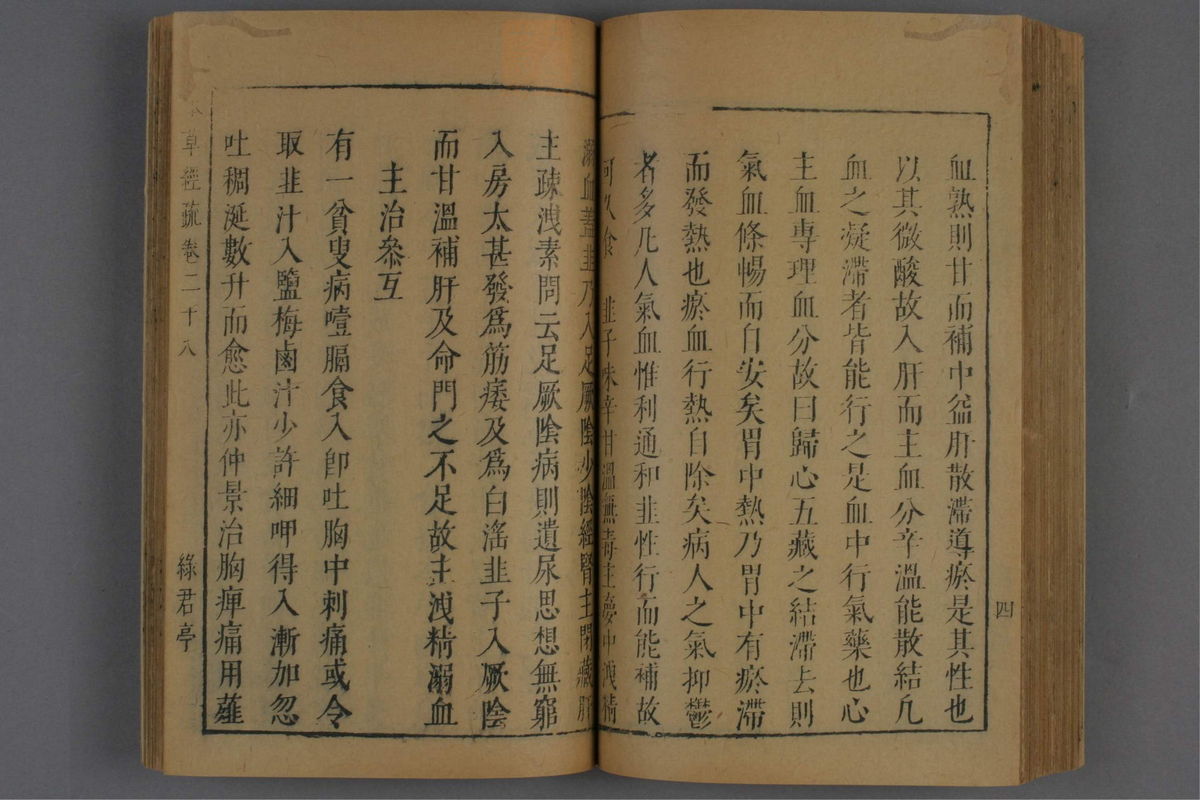 血熟則甘而補中益肝散滯導瘀是其性也
以其微酸故入肝而主血分辛溫能散結凡
血之凝滯者皆能行之是血中行氣藥也心
主血專理血分故曰歸心五藏之結滯去則
氣血條暢而自安矣胃中熱乃胃中有瘀滯
而發熱也瘀血行熱自除矣病人之氣抑鬱
者多凡人氣血惟利通和韭性行而能補故
可久食 韭子味辛甘溫無毒主夢中洩精
溺血蓋韭乃入足厥陰少陰經腎主閉藏肝
主疎洩素問云足厥陰病則遺尿思想無窮
入房太甚發爲筋痿及爲白滛韭子入厥陰
而甘溫補肝及命門之不足故主洩精溺血
主治參互
有一貧叟病噎膈食入卽吐胸中刺痛或令
取韭汁入鹽梅鹵汁少許細呷得入漸加忽
吐稠涎數升而愈此亦仲景治胸痺痛用薤
四
草經疏 卷二十八 綠君亭